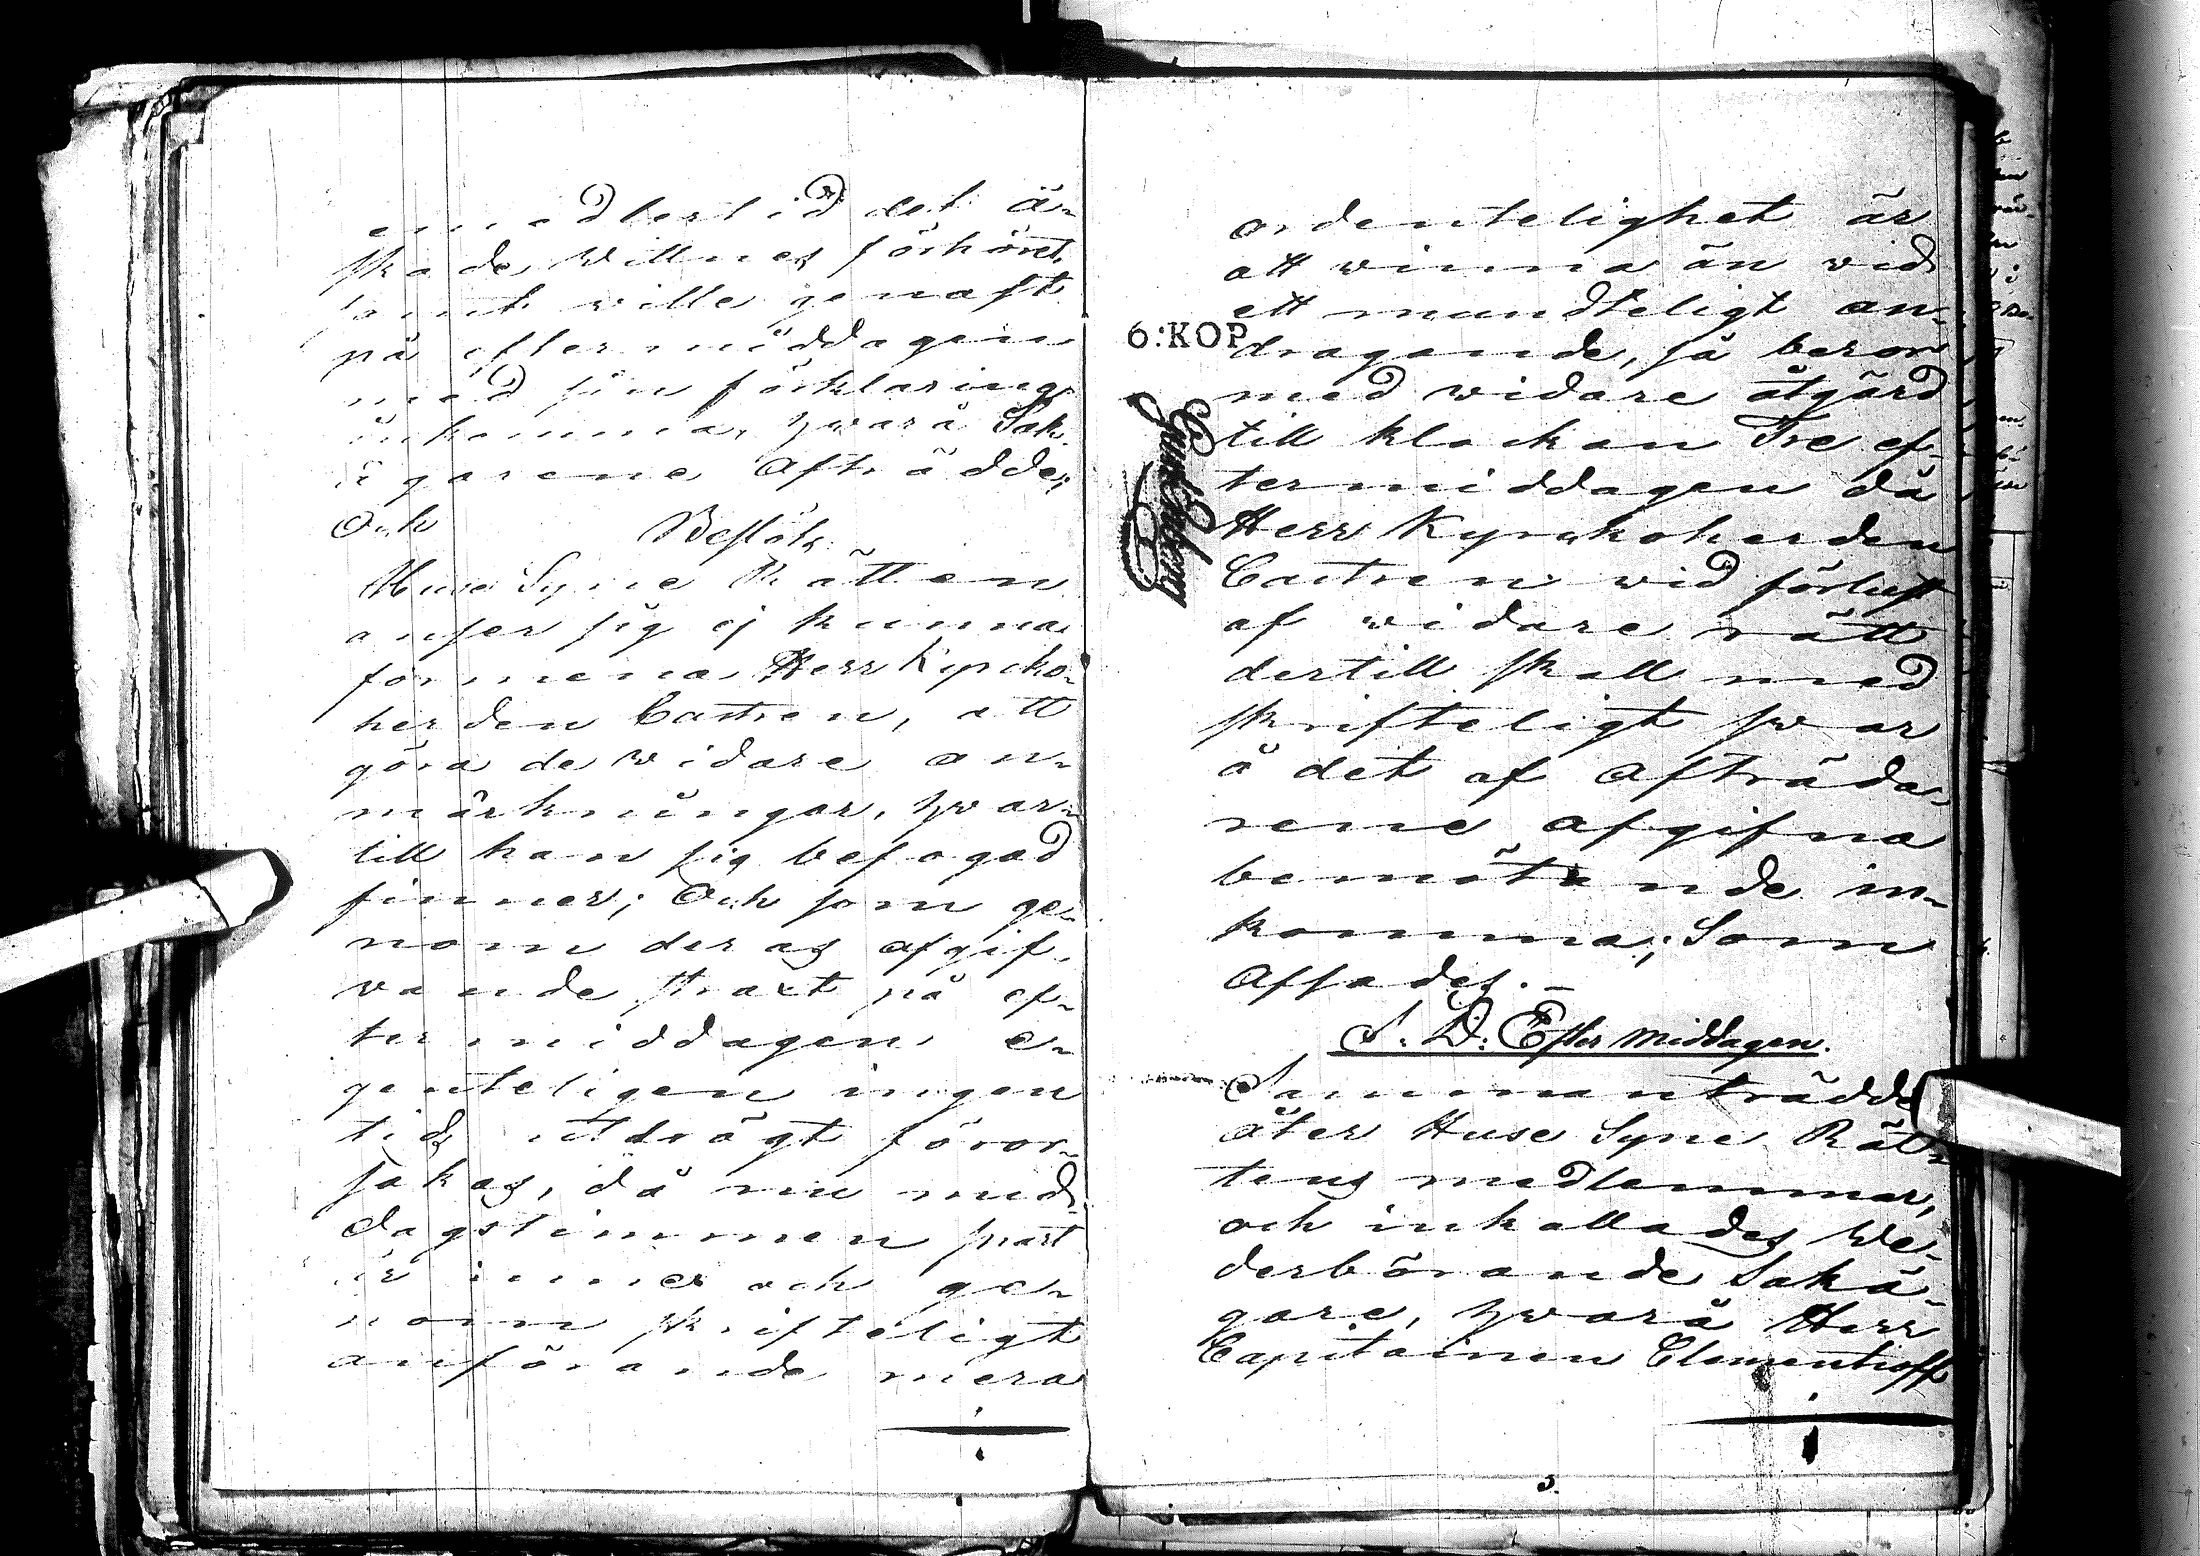 emedlertid det ä-
skade Wittnes förhöret
samt wille genast
på eftermiddagen
med sin förklaring
inkomma, hwarå Sak-
ägarene Afträdde;
Och Beslöts
Huse Syne Rätten
anser sig ej kunna
förmena Herr Kyrcko-
herden Castren, att
göra de widare an-
märkningar, hwar-
till han sig befogad
finner; Och som ge-
nom deras afgif-
vande strart på ef-
termiddagen e-
genteligen ingen
tids utdrägt föror-
sakas, då nu mid-
dagstimmen snart
är inne och ge-
nom skrifteligt
anförande mera
ordentelighet är
att winna än wid
ett mundteligt an-
6:KOP
dragande, så beror
med widare åtgärd
till klockan Tre ef-
termiddagen då
Herr Kyrckoherden
Castren wid förlust
af widare rätt
dertill skall med
skrifteligt swar
å det af Afträda-
rene afgifna
bemötande in-
komma; Som
Afsades.-
S. D. Efter middagen.
Sammanträdde
åter Huse Syne Rät-
tens medlemmar,
och inkallades We-
derbörande Sakä-
gare, hwarå Herr
Capitainen Clementeoff